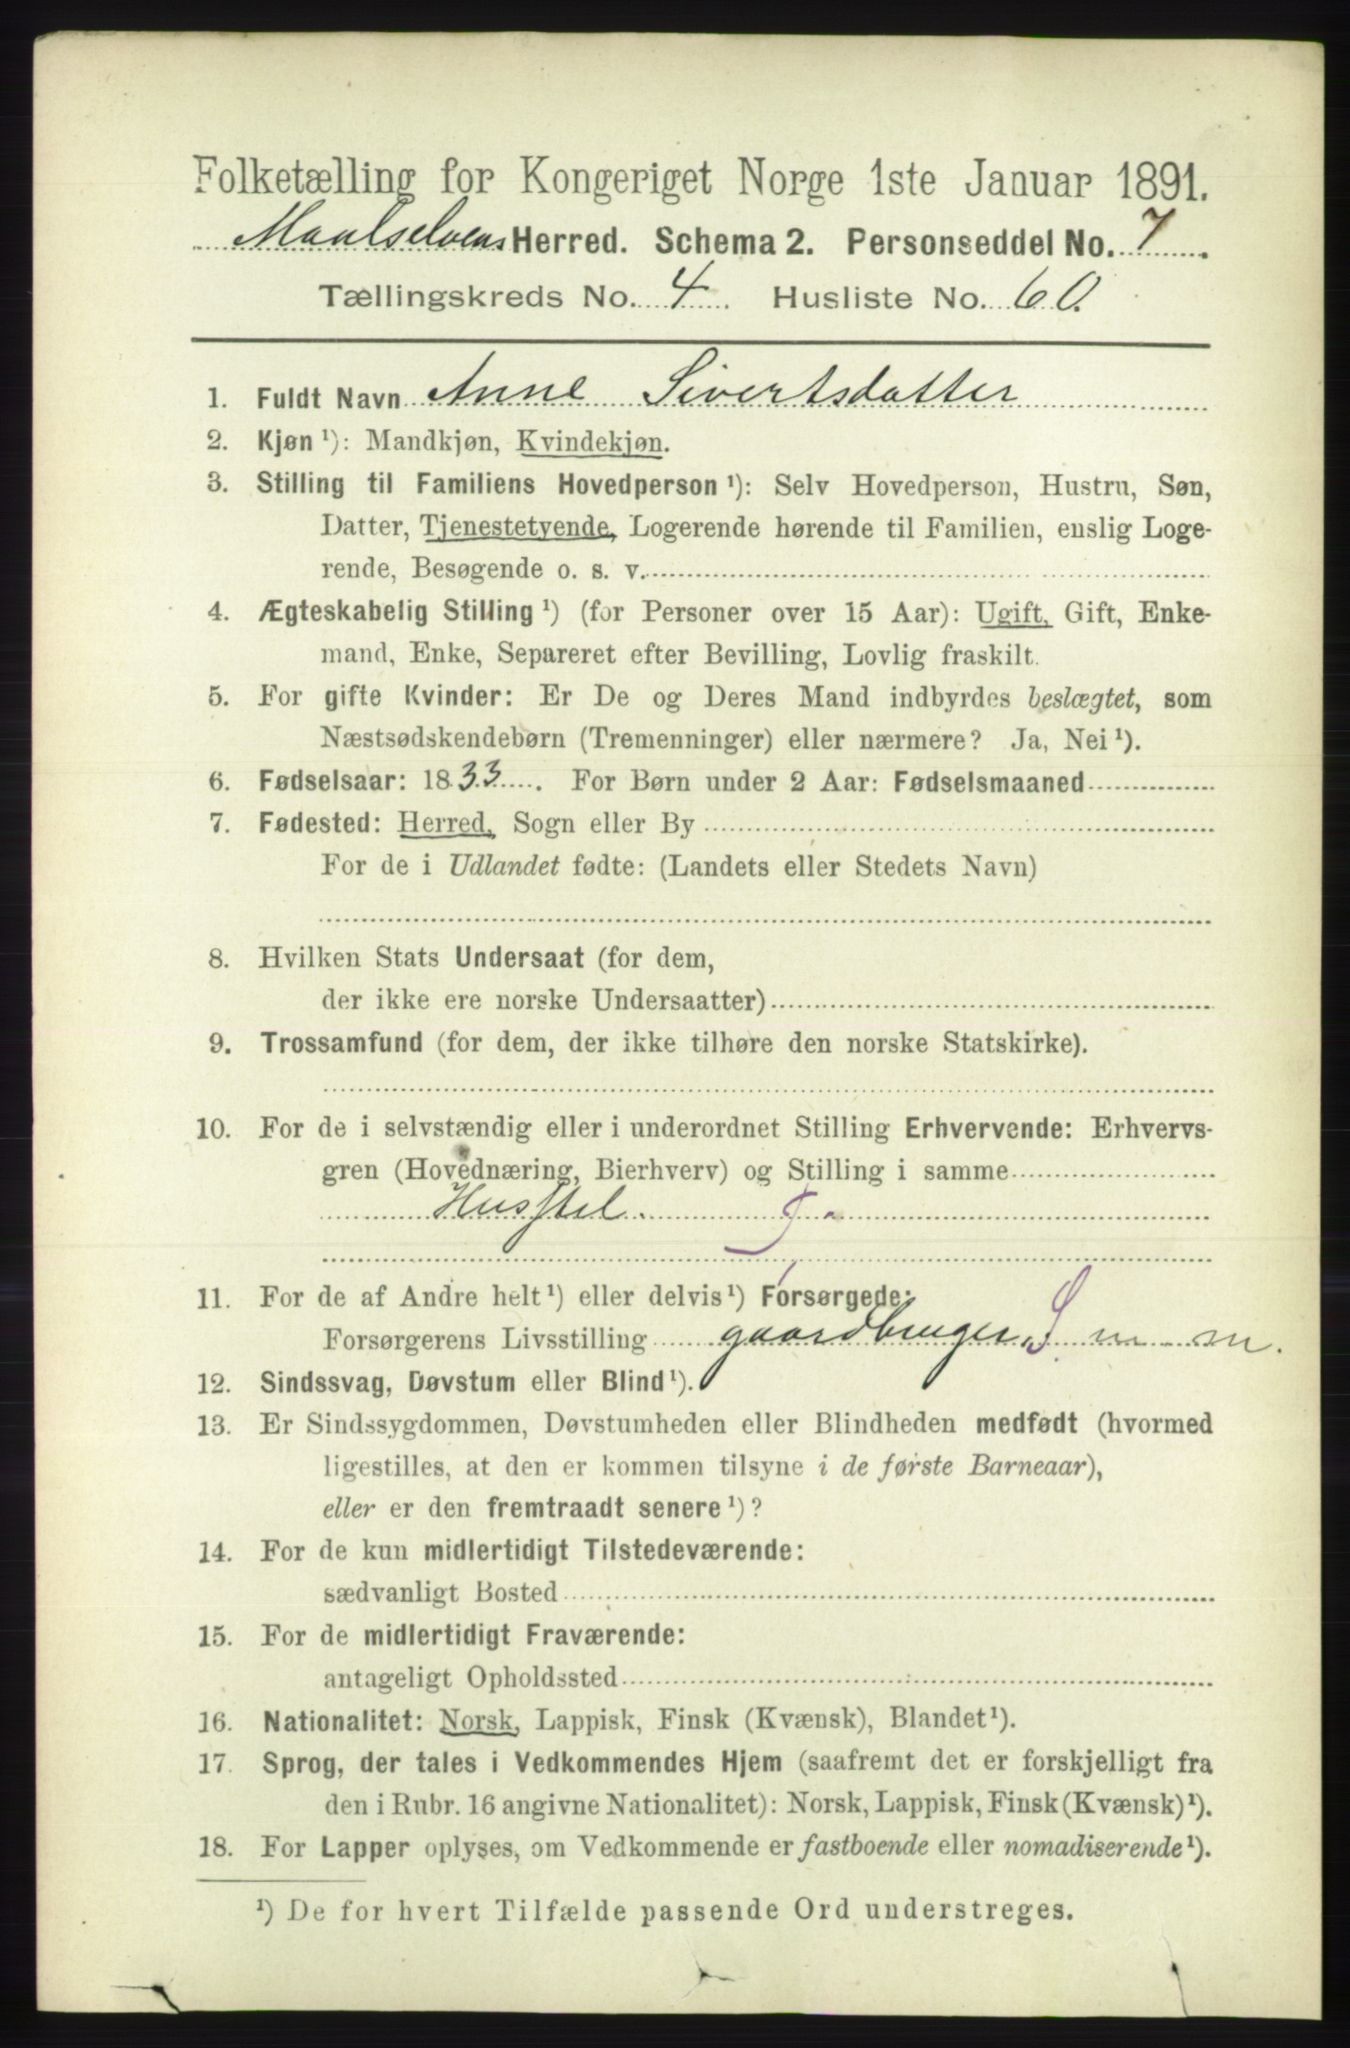 Folketælling for Kongeriget Norge 1ste Januar 1891.
Maalselvens Herred. Schema 2. Personseddel No. 7.
Tællingskreds No. 4. Husliste No. 60.
1. Fuldt Navn Anne Sivertsdatter
2. Kjøn ¹): Mandkjøn, Kvindekjøn.
3. Stilling til Familiens Hovedperson ¹): Selv Hovedperson, Hustru, Søn,
Datter, Tjenestetyende, Logerende hørende til Familien, enslig Loge-
rende, Besøgende o. s. v.
4. Ægteskabelig Stilling ¹) (for Personer over 15 Aar): Ugift, Gift, Enke-
mand, Enke, Separeret efter Bevilling, Lovlig fraskilt.
5. For gifte Kvinder: Er De og Deres Mand indbyrdes beslægtet, som
Næstsødskendebørn (Tremenninger) eller nærmere? Ja, Nei ¹).
6. Fødselsaar: 1833. For Børn under 2 Aar: Fødselsmaaned
7. Fødested: Herred, Sogn eller By
For de i Udlandet fødte: (Landets eller Stedets Navn)
8. Hvilken Stats Undersaat (for dem,
der ikke ere norske Undersaatter)
9. Trossamfund (for dem, der ikke tilhøre den norske Statskirke).
10. For de i selvstændig eller i underordnet Stilling Erhvervende: Erhvervs-
gren (Hovednæring, Bierhverv) og Stilling i samme
Husstel.
11. For de af Andre helt ¹) eller delvis ¹) Forsørgede:
Forsørgerens Livsstilling gaardbruger. S m m.
12. Sindssvag, Døvstum eller Blind ¹).
13. Er Sindssygdommen, Døvstumheden eller Blindheden medfødt (hvormed
ligestilles, at den er kommen tilsyne i de første Barneaar),
eller er den fremtraadt senere ¹)?
14. For de kun midlertidigt Tilstedeværende:
sædvanligt Bosted
15. For de midlertidigt Fraværende:
antageligt Opholdssted
16. Nationalitet: Norsk, Lappisk, Finsk (Kvænsk), Blandet ¹).
17. Sprog, der tales i Vedkommendes Hjem (saafremt det er forskjelligt fra
den i Rubr. 16 angivne Nationalitet): Norsk, Lappisk, Finsk (Kvænsk) ¹).
18. For Lapper oplyses, om Vedkommende er fastboende eller nomadiserende ¹).
¹) De for hvert Tilfælde passende Ord understreges.